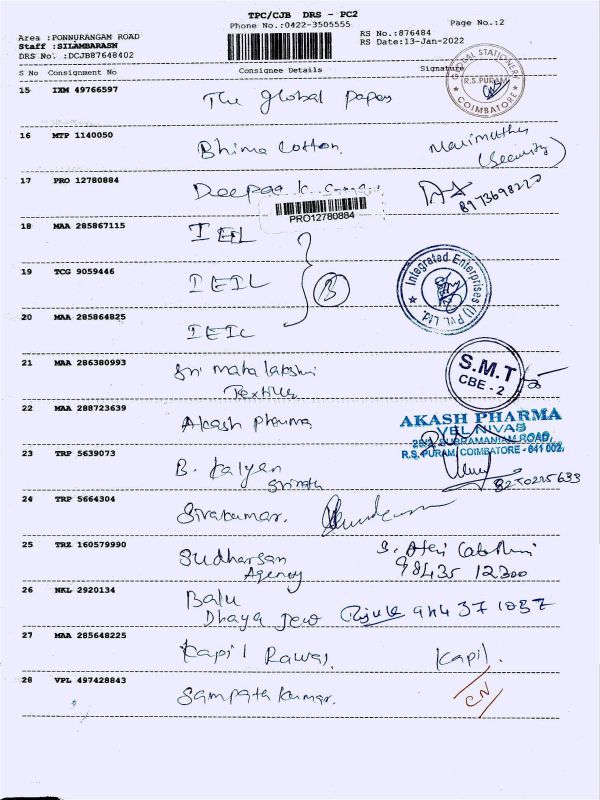 TPC/CJB DRS - PC2
Phone No.:0422-3505555
Page No.:2
Area :PONNURANGAM ROAD
Staff :SILAMBARASN
DRS No. :DCJB87648402
RS No.:876484
RS Date:13-Jan-2022
S No Consignment No Consignee Details Signature
GLOBAL STATIONERY
R.S.PURAM
COIMBATORE
15 IXM 49766597 The Global Papers
16 MTP 1140050 Bhima Cotton. Marimuthu
(Security)
17 PRO 12780884 Deepaa K.
8973698220
PRO12780884
18 MAA 285867115 IEIL
19 TCG 9059446 IEIL
B
Integrated Enterprises (I) Pvt. Ltd.
20 MAA 285864825 IEIL
21 MAA 286380993 Sri Mahalakshmi
Textiles
S.M.T
CBE - 2
22 MAA 288723639 Akash Pharma
AKASH PHARMA
VEL NIVAS
SUBRAMANIAM ROAD,
R.S.PURAM, COIMBATORE - 641 002.
23 TRP 5639073 B. Kalyan
Srinath
8250215633
24 TRP 5664304 Sivakumar.
25 TRZ 160579990 Sudharsan
Agency
98435 12300
26 NKL 2920134 Balu
Dhaya Jew
27 MAA 285648225 Kapil Rawal. Kapil.
28 VPL 497428843 Sampath Kumar. CN